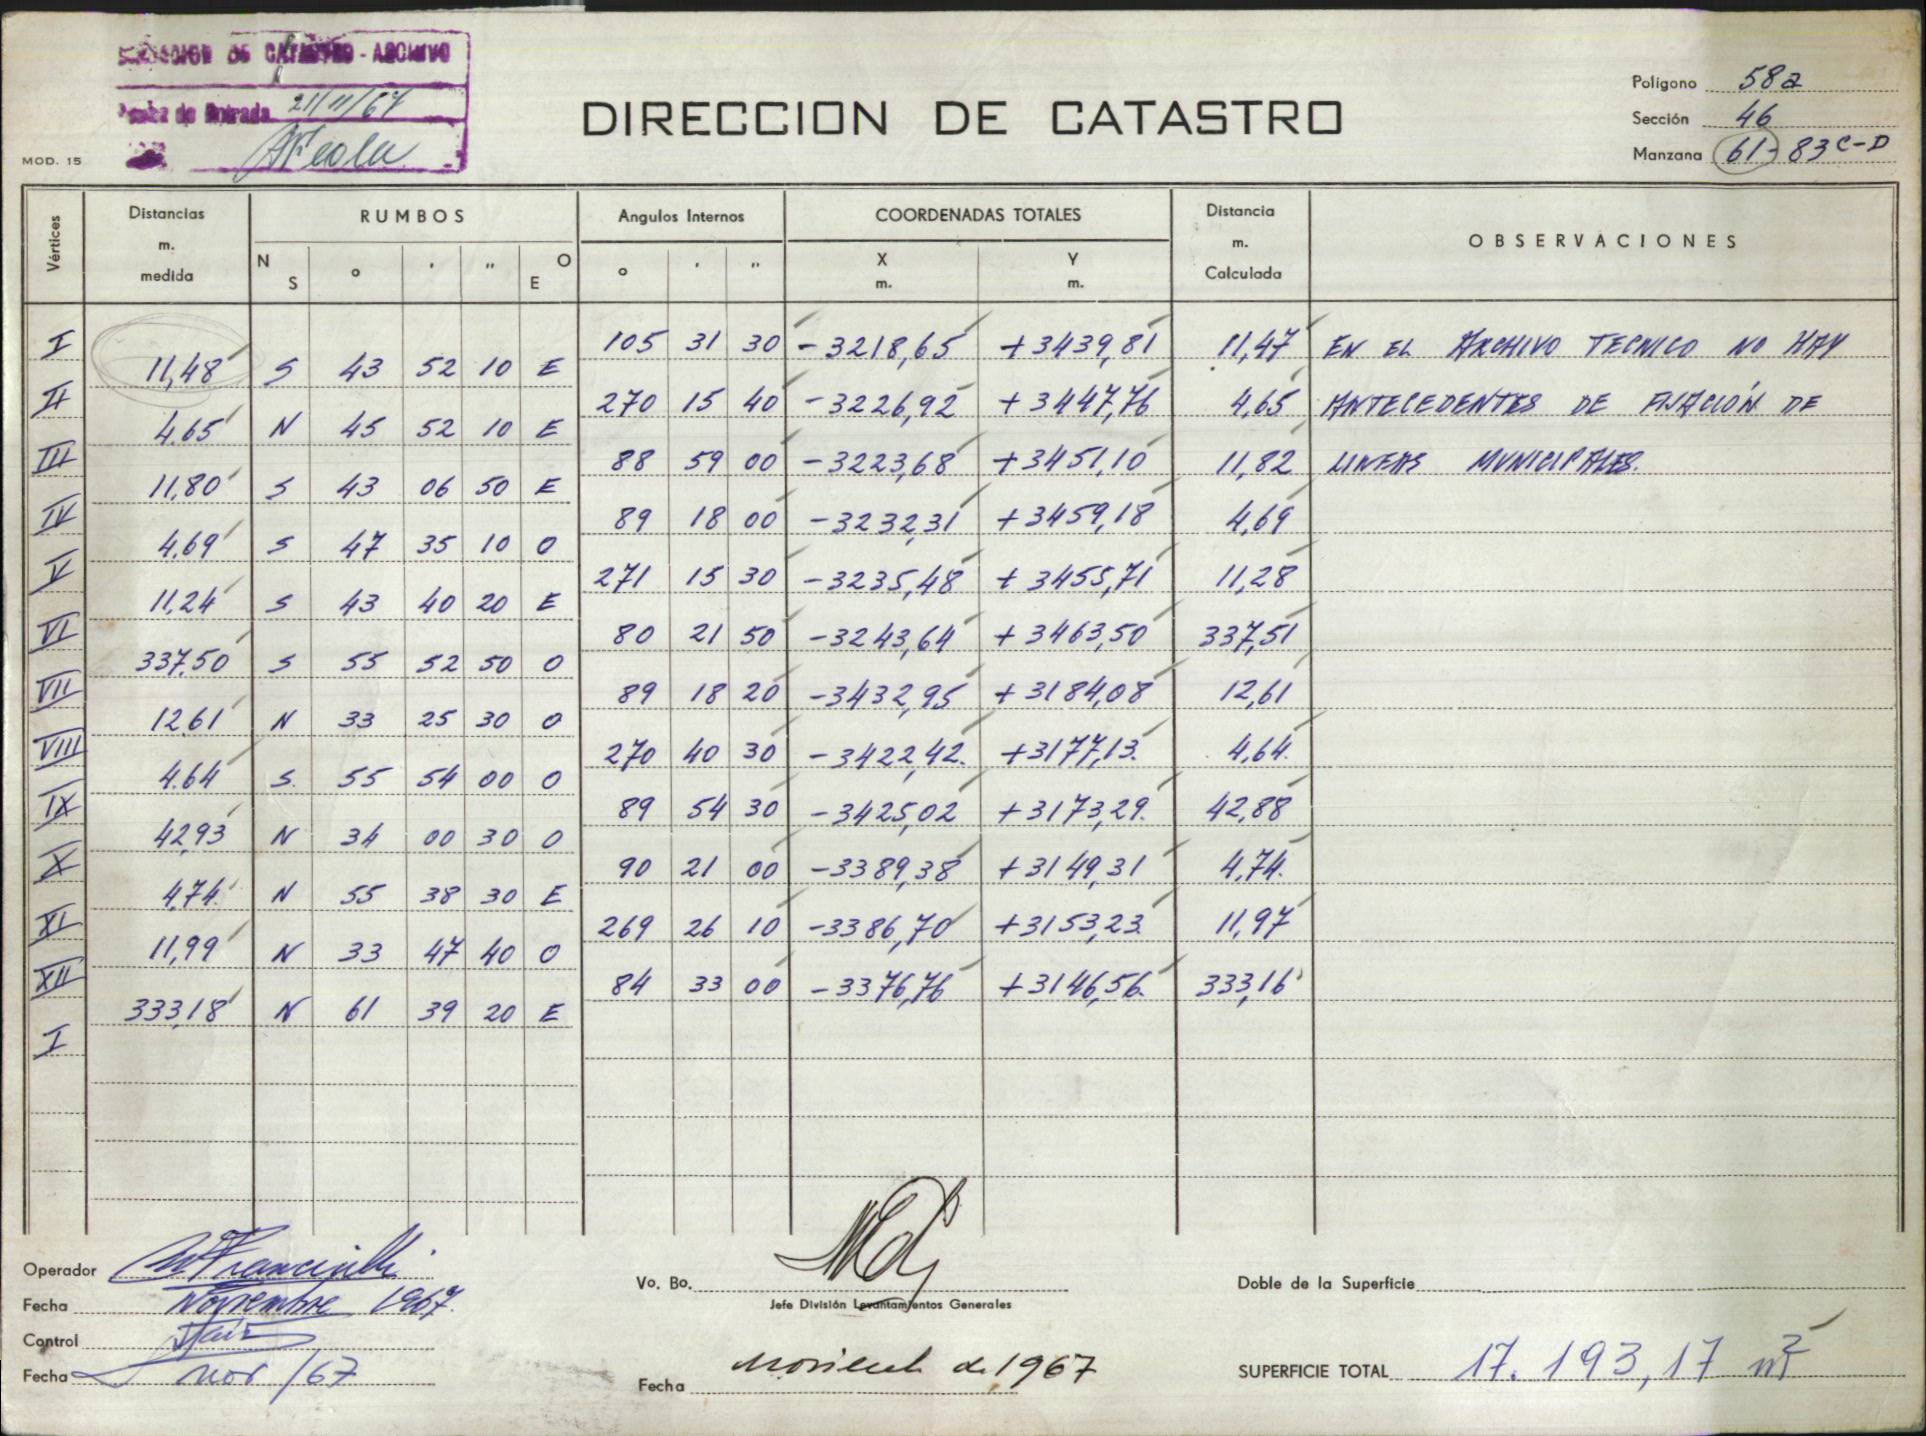 DIRECCION DE CATASTRO - ARCHIVO
Fecha de Entrada 21/11/67
MOD. 15
DIRECCION DE CATASTRO
Polígono 58a
Sección 46
Manzana 61-83 C-D
Vértices | Distancias m. medida | RUMBOS N S ° ' " O E | Angulos Internos ° ' " | COORDENADAS TOTALES X m. Y m. | Distancia m. Calculada | OBSERVACIONES
I 105 31 30 -3218,65 +3439,81 11,47 EN EL ARCHIVO TECNICO NO HAY
11,48 S 43 52 10 E
II 270 15 40 -3226,92 +3447,76 4,65 ANTECEDENTES DE FIJACIÓN DE
4.65 N 45 52 10 E
III 88 59 00 -3223,68 +3451,10 11,82 LINEAS MUNICIPALES.
11,80 S 43 06 50 E
IV 89 18 00 -3232,31 +3459,18 4,69
4.69 S 47 35 10 O
V 271 15 30 -3235,48 +3455,71 11,28
11,24 S 43 40 20 E
VI 80 21 50 -3243,64 +3463,50 337,51
337,50 S 55 52 50 O
VII 89 18 20 -3432,95 +3184,08 12,61
12,61 N 33 25 30 O
VIII 270 40 30 -3422,42. +3177,13. 4,64.
4.64 S. 55 54 00 O
IX 89 54 30 -3425,02 +3173,29. 42,88
42,93 N 34 00 30 O
X 90 21 00 -3389,38 +3149,31 4,74.
4,74 N 55 38 30 E
XI 269 26 10 -3386,70 +3153,23. 11,97
11,99 N 33 47 40 O
XII 84 33 00 -3376,76 +3146,56. 333,16
333,18 N 61 39 20 E
I
Operador
Fecha Noviembre 1967.
Control
Fecha nov/67
Vo. Bo.
Jefe División Levantamientos Generales
Fecha Noviembre de 1967
Doble de la Superficie
SUPERFICIE TOTAL 17.193,17 m²